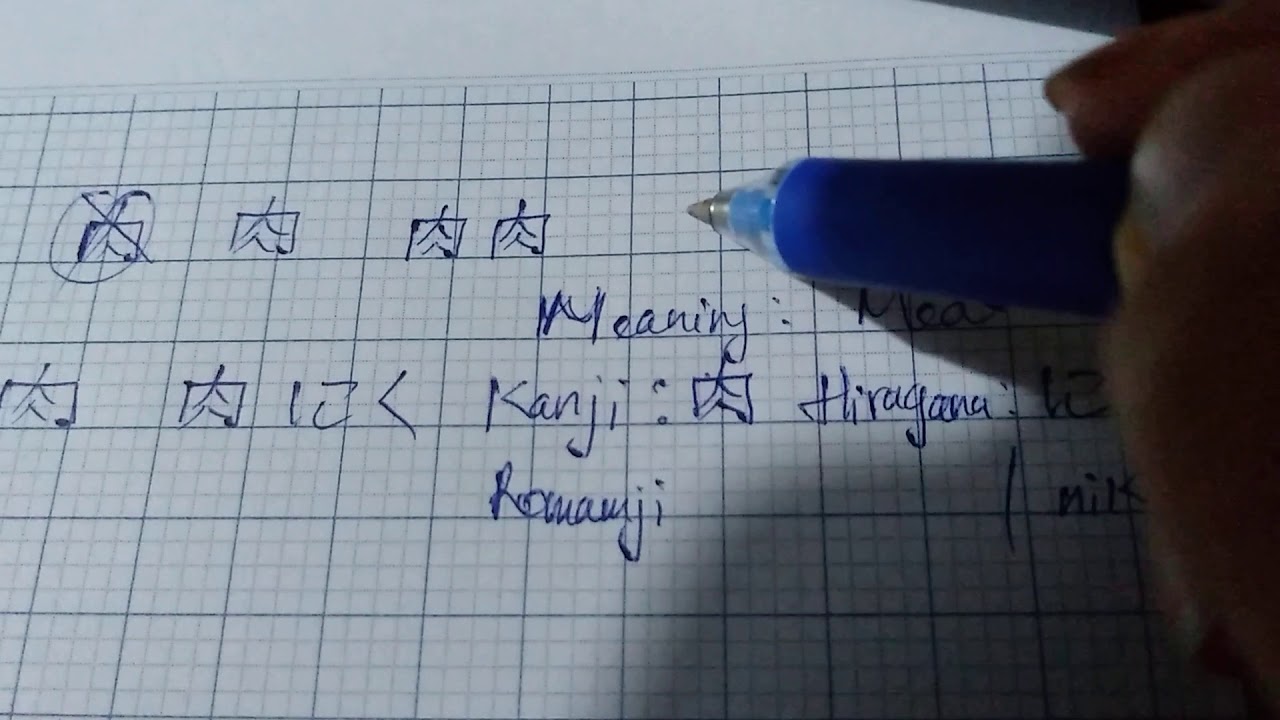 肉 肉 肉 肉
Meaning: Mea
肉 肉 にく Kanji: 肉 Hiragana: に
Romamji / nik